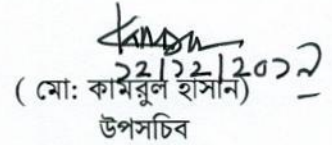 ২২/১২/২০১২
( মো: কামরুল হাসান)
উপসচিব